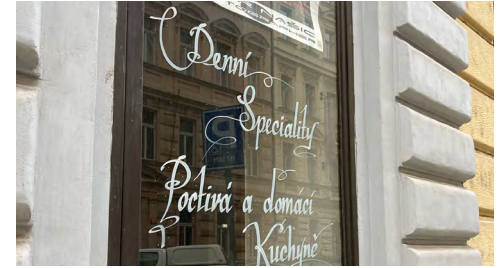 Denní
Speciality
Poctivá a domácí
Kuchyně